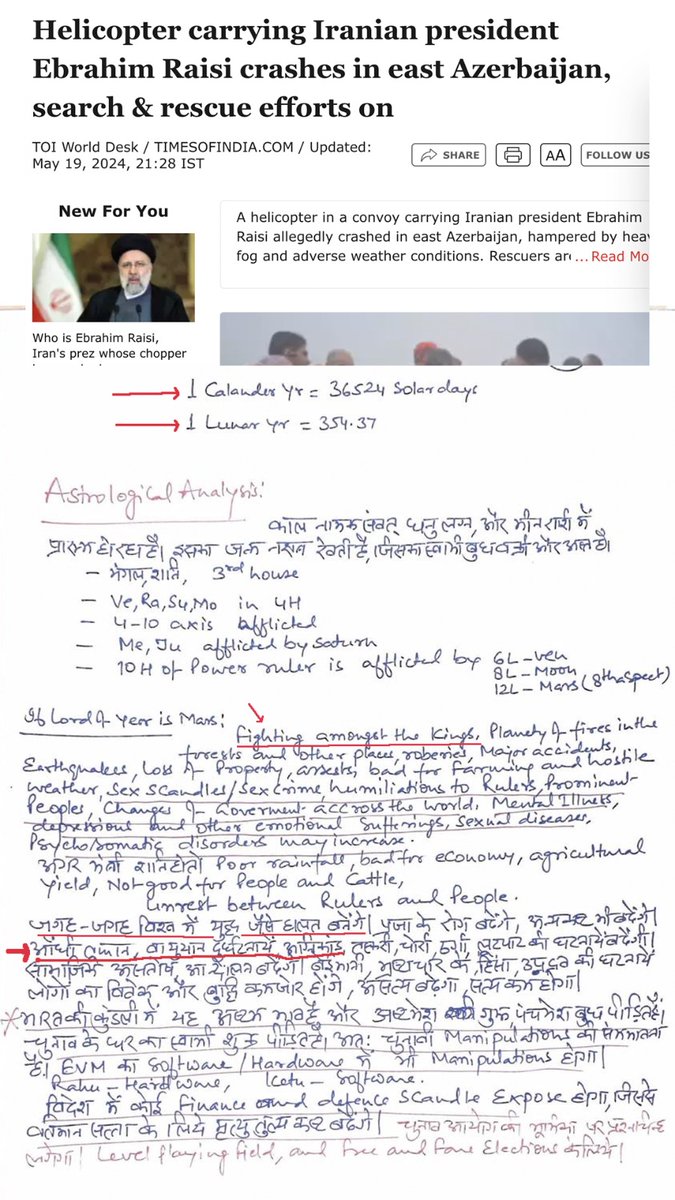 Helicopter carrying Iranian president
Ebrahim Raisi crashes in east Azerbaijan,
search & rescue efforts on
TOI World Desk / TIMESOFINDIA.COM / Updated:
May 19, 2024, 21:28 IST
SHARE
AA
FOLLOW US
New For You
Who is Ebrahim Raisi,
Iran's prez whose chopper
A helicopter in a convoy carrying Iranian president Ebrahim
Raisi allegedly crashed in east Azerbaijan, hampered by heav
fog and adverse weather conditions. Rescuers are ... Read Mo
1 Calander Yr = 36524 Solar days
1 Lunar yr = 354.37
Astrological Analysis:
काल नामक संवत् धनु लग्न, और मीन राशी में
प्रारम्भ हो रहा है। इसका जन्म नक्षत्र रेवती है, जिसका स्वामी बुध वक्री और अस्त है।
- मंगल, शनि, 3rd house
- Ve, Ra, Su, Mo in 4H
- 4-10 axis afflicted
- Me, Ju afflicted by Saturn
- 10H of Power ruler is afflicted by 6L-ven
8L-Moon
12L-Mars (8th aspect)
If Lord of Year is Mars:
Fighting amongst the Kings, Planety of fires in the
forests and other places, roberies, Major accidents,
Earthquakes, Loss of Property, arrests, bad for Farming and hostile
weather, Sex Scandles/Sex crime, humiliations to Rulers, Prominent
Peoples, Changes of Goverment accross the world, Mental Illness,
depressions and other emotional sufferings, sexual diseases,
Psychosomatic disorders may increase.
अगर मंत्री शनि हो तो Poor rainfall, bad for economy, agricultural
Yield, Not good for People and Cattle,
Unrest between Rulers and People.
जगह-जगह विश्व में युद्ध जैसे हालात बनेंगे। पूजा के रोग बढेंगे,
आँधी तूफान, वायुयान दुर्घटनायें, अग्निकांड, तस्करी, चोरी, ठगी, लूटपाट की घटनायें बढेंगी।
सामाजिक असंतोष, आन्दोलन बढेंगा। बेईमानी, भ्रष्टाचार के, हिंसा, उपद्रव की घटनायें
लोगों का विवेक और बुद्धि कमजोर होंगे, असत्य बढेगा, सत्य कम होगा।
* भारत की कुंडली में यह अष्टम भाव है और अष्टमेश गुरू पंचमेश बुध पीड़ित है।
चुनाव के घर का स्वामी शुक्र पीड़ित है। अतः चुनावी Manipulations की सम्भावना
है। EVM का Software/Hardware में भी Manipulations होगा।
Rahu - Hardware, Ketu - Software.
विदेश में कोई Finance and defence Scandle Expose होगा, जिससे
वर्तमान सत्ता के लिये मृत्यु तुल्य कष्ट बढेंगे। चुनाव आयोग की भूमिका पर प्रश्नचिन्ह
लगेगा। Level playing field, and free and fare Elections के लिये।